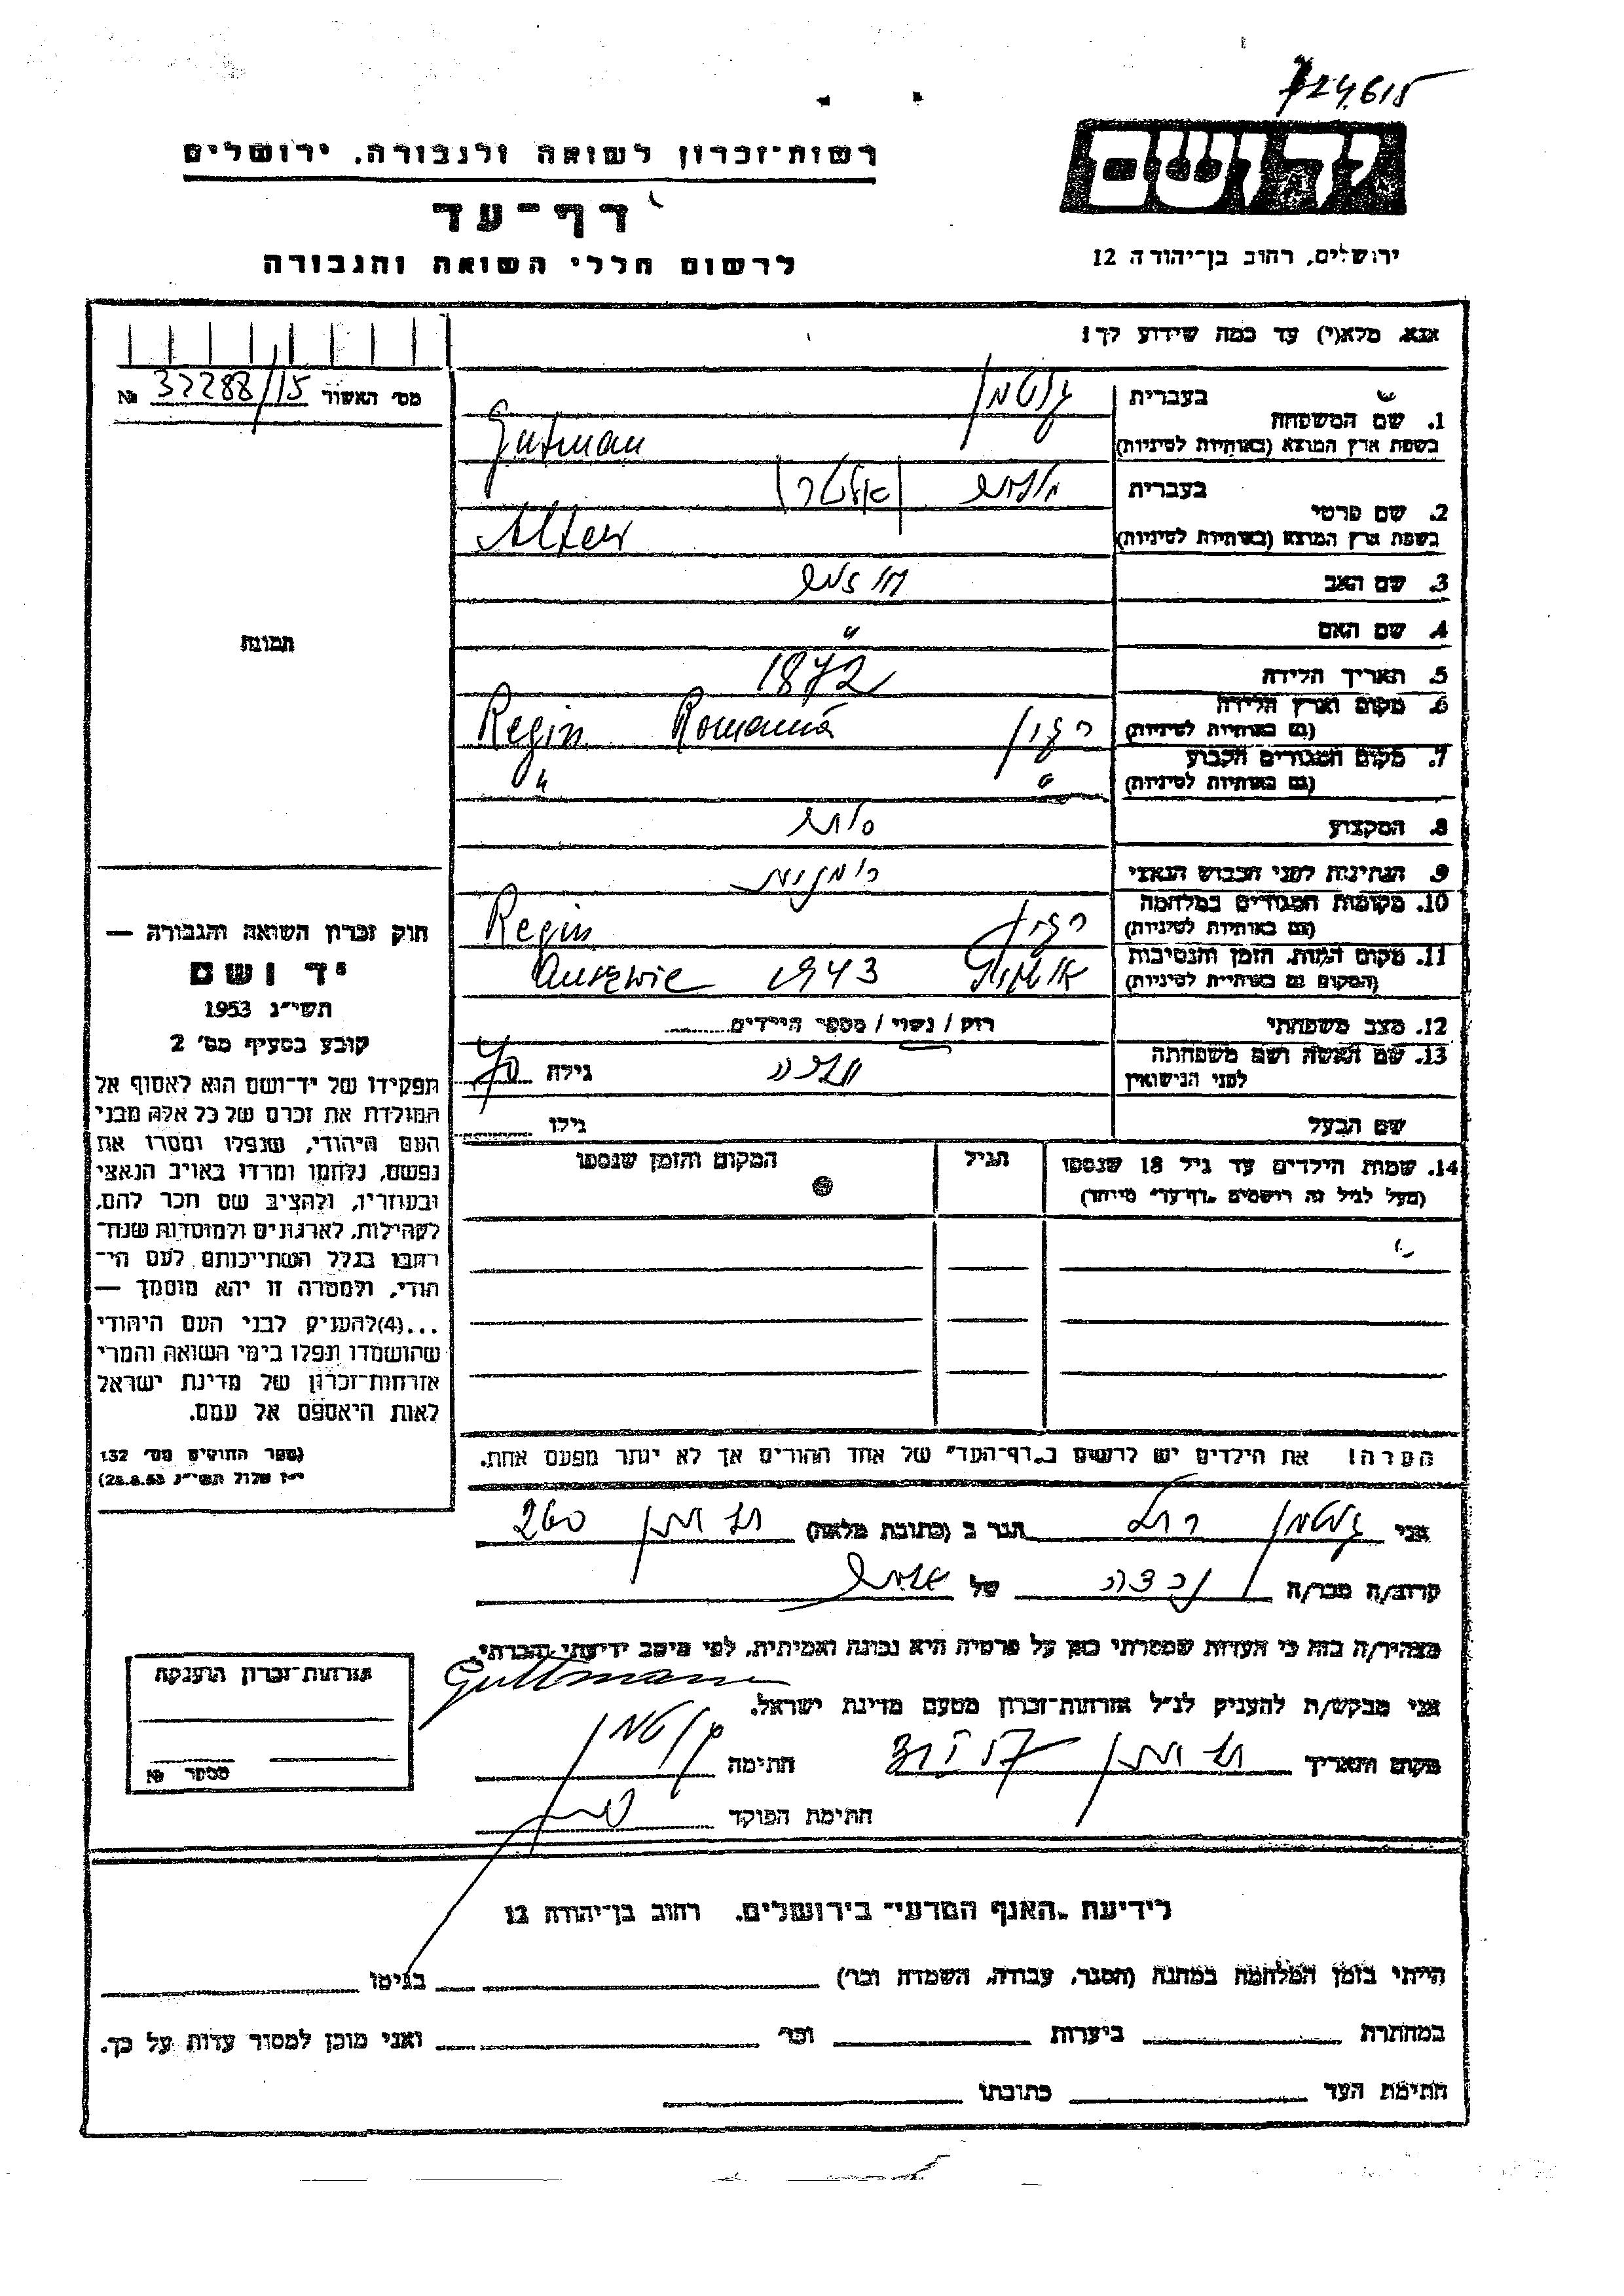 724615
יד ושם
ירושלים, רחוב בן־יהודה 12
רשות־זכרון לשואה ולגבורה, ירושלים
דף־עד
לרשום חללי השואה והגבורה
אנא, מלא(י) עד כמה שידוע לך!
מס׳ האשור 32288/15 №
1. שם המשפחה
בעברית גוטמן
בשפת ארץ המוצא (באותיות לטיניות) Gutman
2. שם פרטי
בעברית (אלטר)
בשפת ארץ המוצא (באותיות לטיניות) Alter
3. שם האב
4. שם האם "
5. תאריך הלידה 1872
6. מקום וארץ הלידה
(גם באותיות לטיניות) רגין Romania Regin
7. מקום המגורים הקבוע
(גם באותיות לטיניות) " "
8. המקצוע סוחר
9. הנתינות לפני הכבוש הנאצי רומנית
10. מקומות המגורים במלחמה
(גם באותיות לטיניות) רגין Regin
11. מקום המות, הזמן והנסיבות
(המקום גם באותיות לטיניות) אושויץ 1943 Auszwic
12. מצב משפחתי רוק / נשוי / מספר הילדים
13. שם האשה ושם משפחתה
לפני הנישואין
גילה 70
שם הבעל
גילו
14. שמות הילדים עד גיל 18 שנספו
(מעל לגיל זה רושמים „דף־עד” מיוחד)
הגיל
המקום והזמן שנספו
הערה! את הילדים יש לרשום ב„דף־העד” של אחד ההורים אך לא יותר מפעם אחת.
תמונה
חוק זכרון השואה והגבורה —
יד ושם
תשי״ג 1953
קובע בסעיף מס׳ 2
תפקידו של יד־ושם הוא לאסוף אל
המולדת את זכרם של כל אלה מבני
העם היהודי, שנפלו ומסרו את
נפשם, נלחמו ומרדו באויב הנאצי
ובעוזריו, ולהציב שם וזכר להם,
לקהילות, לארגונים ולמוסדות שנח־
רבו בגלל השתייכותם לעם הי־
הודי, ולמטרה זו יהא מוסמך —
...(4) להעניק לבני העם היהודי
שהושמדו ונפלו בימי השואה והמרי
אזרחות־זכרון של מדינת ישראל
לאות היאספם אל עמם.
(ספר החוקים מס׳ 132
י״ז אלול תשי״ג 28.8.53)
אני גוטמן רחל הגר ב (כתובת מלאה) 260
קרוב/ה מכר/ה נכדה של
מצהיר/ה בזה כי העדות שמסרתי כאן על פרטיה היא נכונה ואמיתית, לפי מיטב ידיעתי והכרתי.
Guttmann
אני מבקש/ת להעניק לנ״ל אזרחות־זכרון מטעם מדינת ישראל.
מקום ותאריך
חתימה גוטמן
חתימת הפוקד
אזרחות־זכרון הוענקה
מספר №
לידיעת „האגף המדעי” בירושלים, רחוב בן־יהודה 12
הייתי בזמן המלחמה במחנה (הסגר, עבודה, השמדה וכו׳) בגיטו
במחתרת ביערות וכו׳ ואני מוכן למסור עדות על כך.
חתימת העד כתובתו